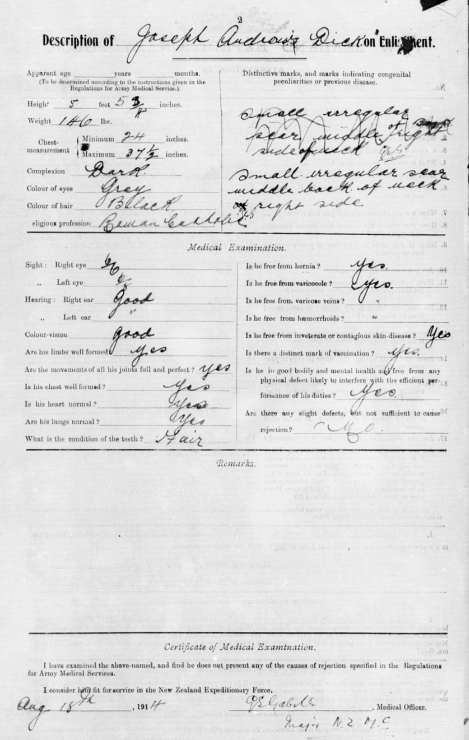 2
Description of Joseph Andrew Dick on Enlistment.
Apparent age years months.
(To be determined according to the instructions given in the
Regulations for Army Medical Service.)
Height 5 feet 5 3/8 inches.
Weight 140 lbs.
Chest-measurement { Minimum 34 inches.
Maximum 37 1/2 inches.
Complexion Dark
Colour of eyes Grey
Colour of hair Black
eligious profession Roman Catholic
Distinctive marks, and marks indicating congenital
peculiarities or previous disease.
small irregular
scar middle of right
side of neck
Small irregular scar
middle back of neck
right side
Medical Examination.
Sight: Right eye 6/6
„ Left eye 6/6
Hearing: Right ear Good
„ Left ear "
Colour-vision good
Are his limbs well formed? Yes
Are the movements of all his joints full and perfect? Yes
Is his chest well formed? Yes
Is his heart normal? Yes
Are his lungs normal? Yes
What is the condition of the teeth? Fair
Is he free from hernia? Yes.
Is he free from varicocele? Yes.
Is he free from varicose veins? "
Is he free from hæmorrhoids? "
Is he free from inveterate or contagious skin-disease? Yes
Is there a distinct mark of vaccination? Yes.
Is he in good bodily and mental health and free from any
physical defect likely to interfere with the efficient per-
formance of his duties? Yes.
Are there any slight defects, but not sufficient to cause
rejection? No.
Remarks.
Certificate of Medical Examination.
I have examined the above-named, and find he does not present any of the causes of rejection specified in the Regulations
for Army Medical Services.
I consider him fit for service in the New Zealand Expeditionary Force.
Aug 18th, 1914
, Medical Officer.
Major N.Z.M.C